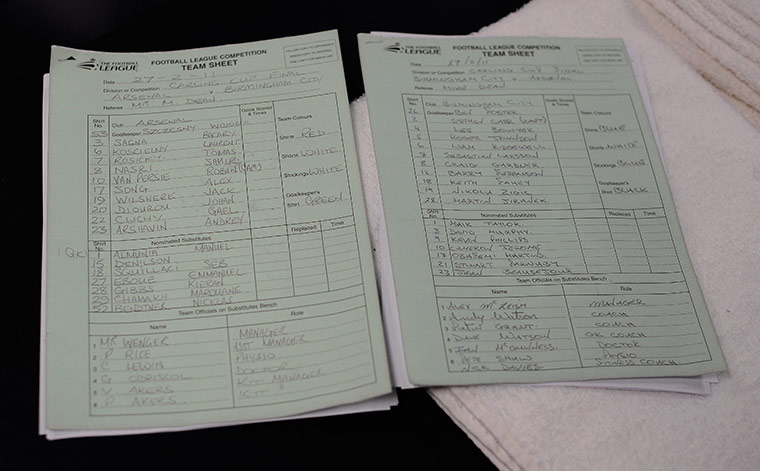 THE FOOTBALL LEAGUE
FOOTBALL LEAGUE COMPETITION
TEAM SHEET
Date 27-2-11
Division or Competition CARLING CUP FINAL
ARSENAL v BIRMINGHAM CITY
Referee MR M. DEAN
Shirt No Club ARSENAL Goals Scored & Times Team Colours
53 Goalkeeper SZCZESNY WOJCIECH
3 SAGNA BACARY
6 KOSCIELNY LAURENT Shirts RED
7 ROSICKY TOMAS
8 NASRI SAMIR Shorts WHITE
10 VAN PERSIE ROBIN (CAPT)
17 SONG ALEX Stockings WHITE
19 WILSHERE JACK
20 DJOUROU JOHAN Goalkeeper's
22 CLICHY GAEL Shirt GREEN
23 ARSHAVIN ANDREY
Shirt No Nominated Substitutes Replaced Time
1 GK 1 ALMUNIA MANUEL
15 DENILSON
18 SQUILLACI SEB
27 EBOUE EMMANUEL
28 GIBBS KIERAN
29 CHAMAKH MAROUANE
52 BENDTNER NICKLAS
Team Officials on Substitutes Bench
Name Role
1 MR WENGER MANAGER
2 P RICE MANAGER
3 C LEWIN PHYSIO
4 G DOCTOR
5 V. AKERS KIT MANAGER
6 P AKERS. KIT
THE FOOTBALL LEAGUE
FOOTBALL LEAGUE COMPETITION
TEAM SHEET
Date
Division or Competition CARLING CUP FINAL
BIRMINGHAM CITY v ARSENAL
Referee MIKE DEAN
Shirt No Club BIRMINGHAM CITY Goals Scored & Times Team Colours
26 Goalkeeper BEN FOSTER
2 STEPHEN CARR (CAPT)
4 LEE BOWYER Shirts BLUE
5 ROGER JOHNSON
6 LIAM RIDGEWELL Shorts WHITE
7 SEBASTIAN LARSSON
8 CRAIG GARDNER Stockings BLUE
12 BARRY FERGUSON
18 KEITH FAHEY Goalkeeper's
19 NIKOLA ZIGIC Shirt BLACK
28 MARTIN JIRANEK
Shirt No Nominated Substitutes Replaced Time
1 MAIK TAYLOR
3 DAVID MURPHY
9 KEVIN PHILLIPS
10 CAMERON JEROME
17 OBAFEMI MARTINS
21 STUART PARNABY
23 JEAN BEAUSEJOUR
Team Officials on Substitutes Bench
Name Role
1 ALEX McLEISH MANAGER
2 Andy Watson COACH
3 PETER GRANT COACH
4 DAVE WATSON GK COACH
5 McGUINNESS DOCTOR
6 PETE SHAW PHYSIO
NICK DAVIES FITNESS COACH